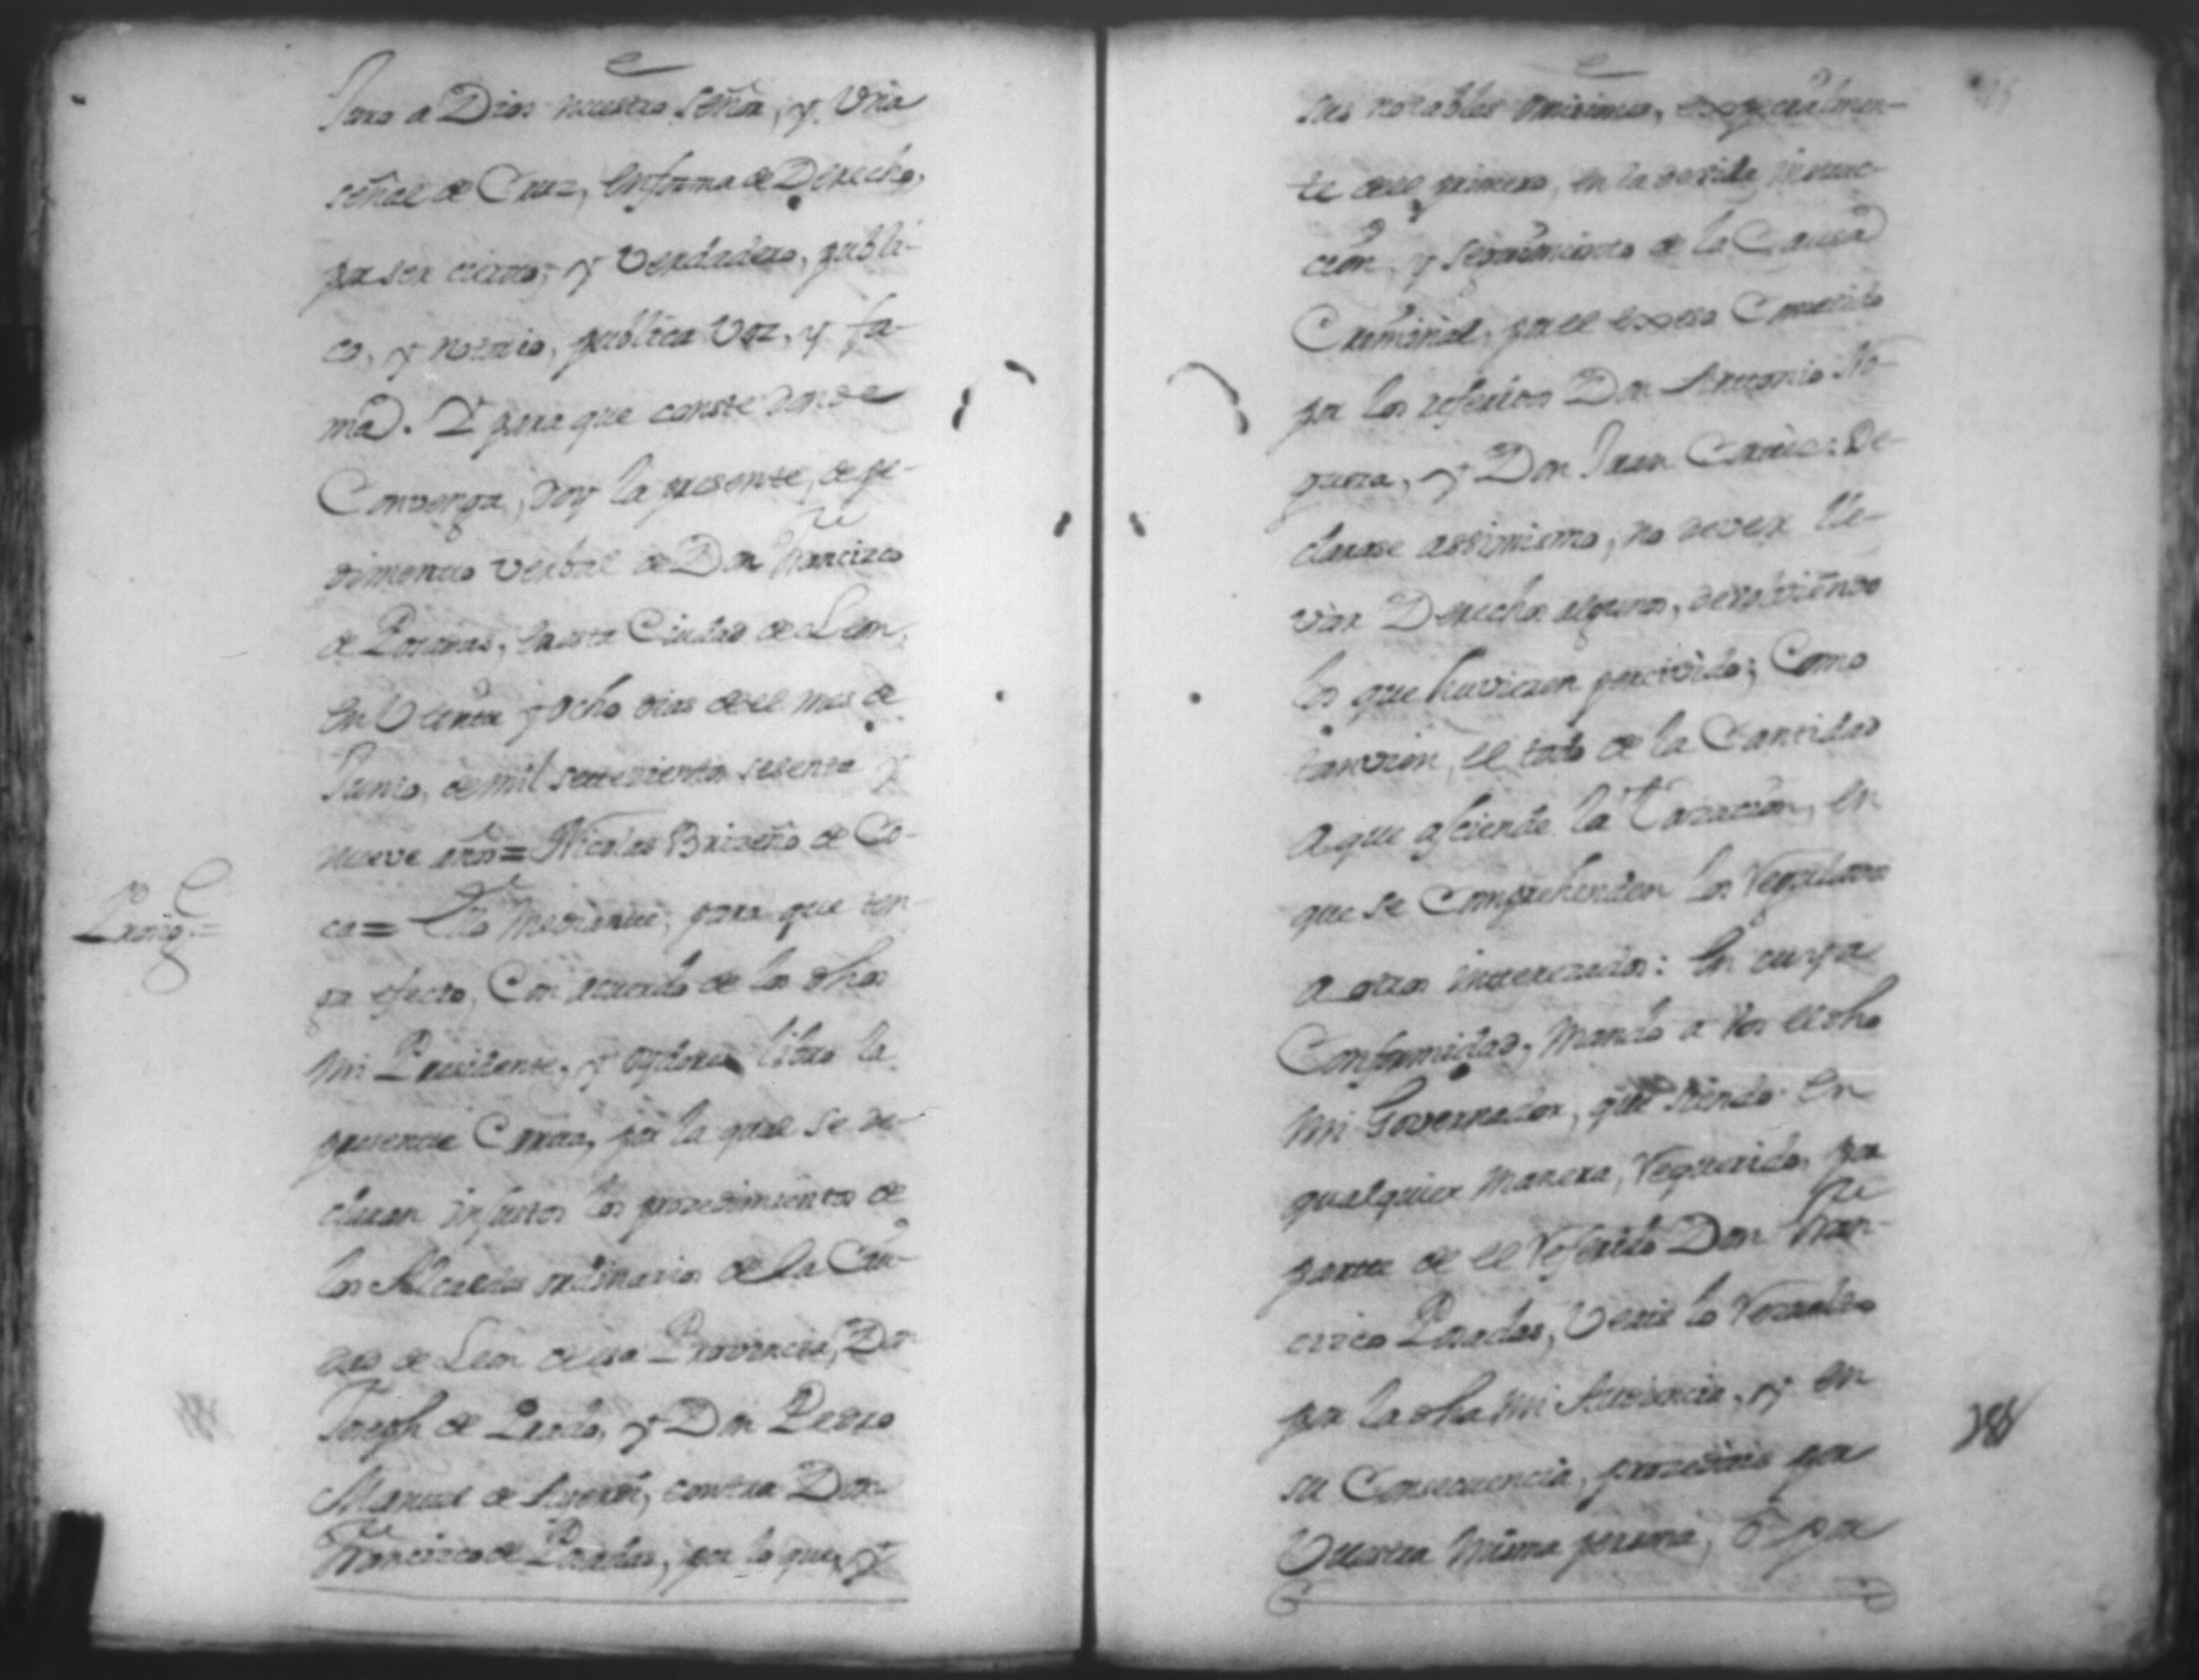 Juro a Dios nuestro Señor, y Vna
señal de Cruz, en forma de Derecho,
por ser cierto, y Verdadero, publi-
co, y notorio, publica Voz, y fa-
ma. Y para que conste donde
Convenga, doy la presente, de pe-
dimento verbal de Don Francisco
de Posadas, en esta Ciudad de Leon,
en Veinte y ocho dias de el mes de
Junio, de mil settecientos sesenta y
nueve años= Nicolas Brizeño de Co-
ca= Ello mediante, para que ten-
ga efecto, Con acuerdo de los dhos
mi Presidente, y oydores libro la
presente Carta, por la qual se de-
claran injustos los procedimientos de
los Alcaldes ordinarios de la Ciu-
dad de Leon de esa Provincia, Don
Joseph de Prado, y Don Pedro
Manuel de contra Don
Francisco de Posadas, por lo que, y
Prosig.=
sus notables omisiones, expecialmen-
te de el primero, en la devida instruc-
cion, y seguimiento de la Causa
Criminal, por el exceso Cometido
por los referidos Don Antonio No-
guera, y Don Juan De-
clarase assimismo, no dever lle-
var Derechos algunos, devolviendo
los que huvieren percivido; Como
tanvien, el todo de la Cantidad
a que asciende la tazacion, en
que se Comprehenden los Regulados
a otros interezados: En cuya
Conformidad, mando a Vos el dho
mi Governador, que siendo en
qualquier manera, Requerido, por
parte de el Referido Don Fran-
cisco Posadas, Veais lo Resuelto
por la dha mi Audiencia, y en
su Consecuencia, procedais por
Vuestra misma persona, ó por